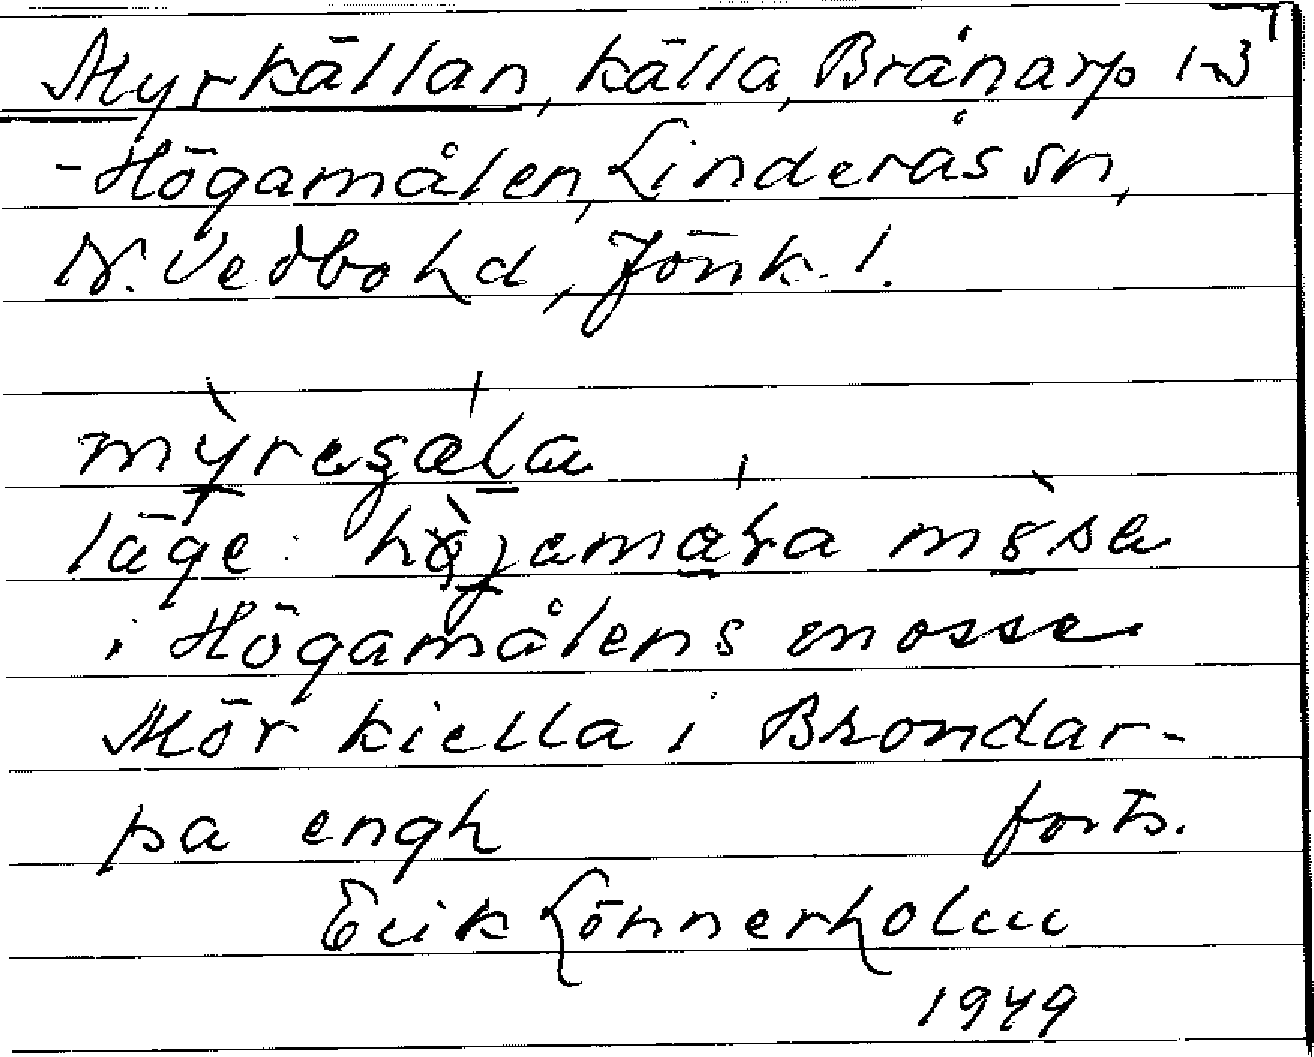 Myrkällan, källa, Brånarp 1-3
-Högamålen, Linderås sn,
N. Vedbo hd, Jönk. l.
läge:
i Högamålens mosse
Mör kiella i Brondar-
pa engh forts.
Erik Lönnerholm
1949